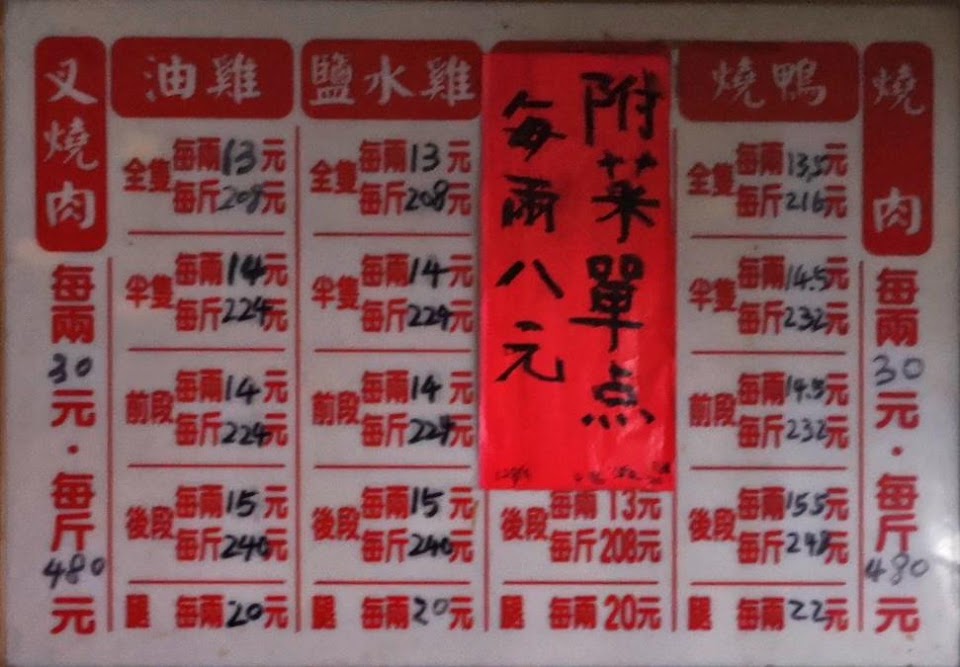 叉燒肉
每兩30元·每斤480元
油雞
全隻 每兩13元
每斤208元
半隻 每兩14元
每斤224元
前段 每兩14元
每斤224元
後段 每兩15元
每斤240元
腿 每兩20元
鹽水雞
全隻 每兩13元
每斤208元
半隻 每兩14元
每斤224元
前段 每兩14元
每斤224元
後段 每兩15元
每斤240元
腿 每兩20元
附菜單点
每兩八元
後段 每兩13元
每斤208元
腿 每兩20元
燒鴨
全隻 每兩13.5元
每斤216元
半隻 每兩14.5元
每斤232元
前段 每兩14.5元
每斤232元
後段 每兩15.5元
每斤248元
腿 每兩22元
燒肉
每兩30元·每斤480元